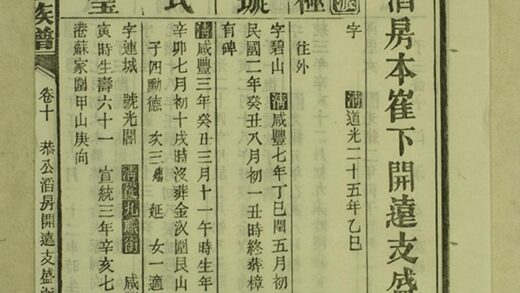 滔房本崔下開遠支盛
字　清道光二十五年乙巳
往外
字碧山　清咸豐七年丁巳閏五月初
民國二年癸丑八月初一丑時終葬樟
有碑
清咸豐三年癸丑三月十一午時生年
辛卯七月初十戌時沒葬金汊圍艮山
子四勳德　亥三　延　女一適
字連城　號光閣　清從九職銜　咸
寅時生壽六十一　宣統三年辛亥七
港蘇家園甲山庚向
族譜　卷十　恭公滔房開遠支盛